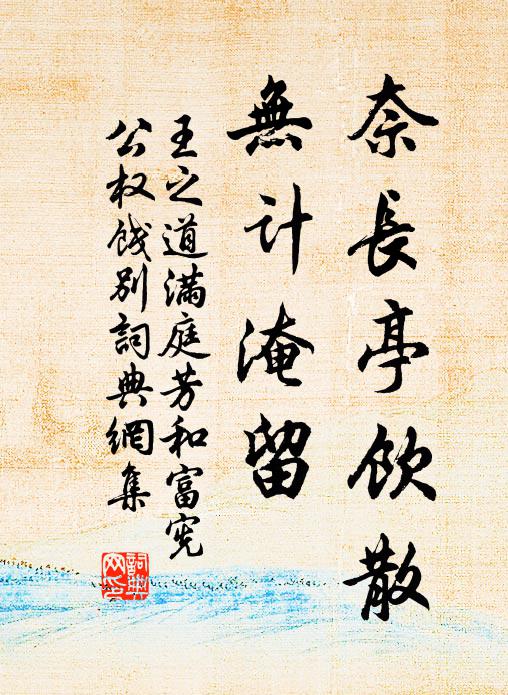 奈長亭飲散
無計淹留
王之道滿庭芳和富宪
公权餞別詞典網集
詞典